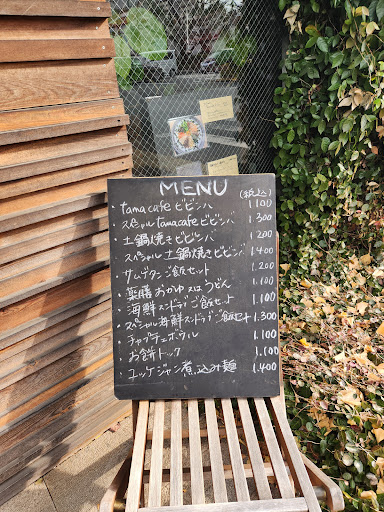 MENU
(税込)
・tama cafe ビビンバ 1.100
・スペシャル tama cafe ビビンバ 1.300
・土鍋焼きビビンバ 1.200
・スペシャル 土鍋焼きビビンバ 1.400
・サムゲタンご飯セット 1.200
・薬膳おかゆ又はうどん 1.100
・海鮮スンドゥブご飯セット 1.100
・スペシャル海鮮スンドゥブご飯セット 1.300
・チャプチェボウル 1.100
・お餅トック 1.100
・ユッケジャン煮込み麺 1.400